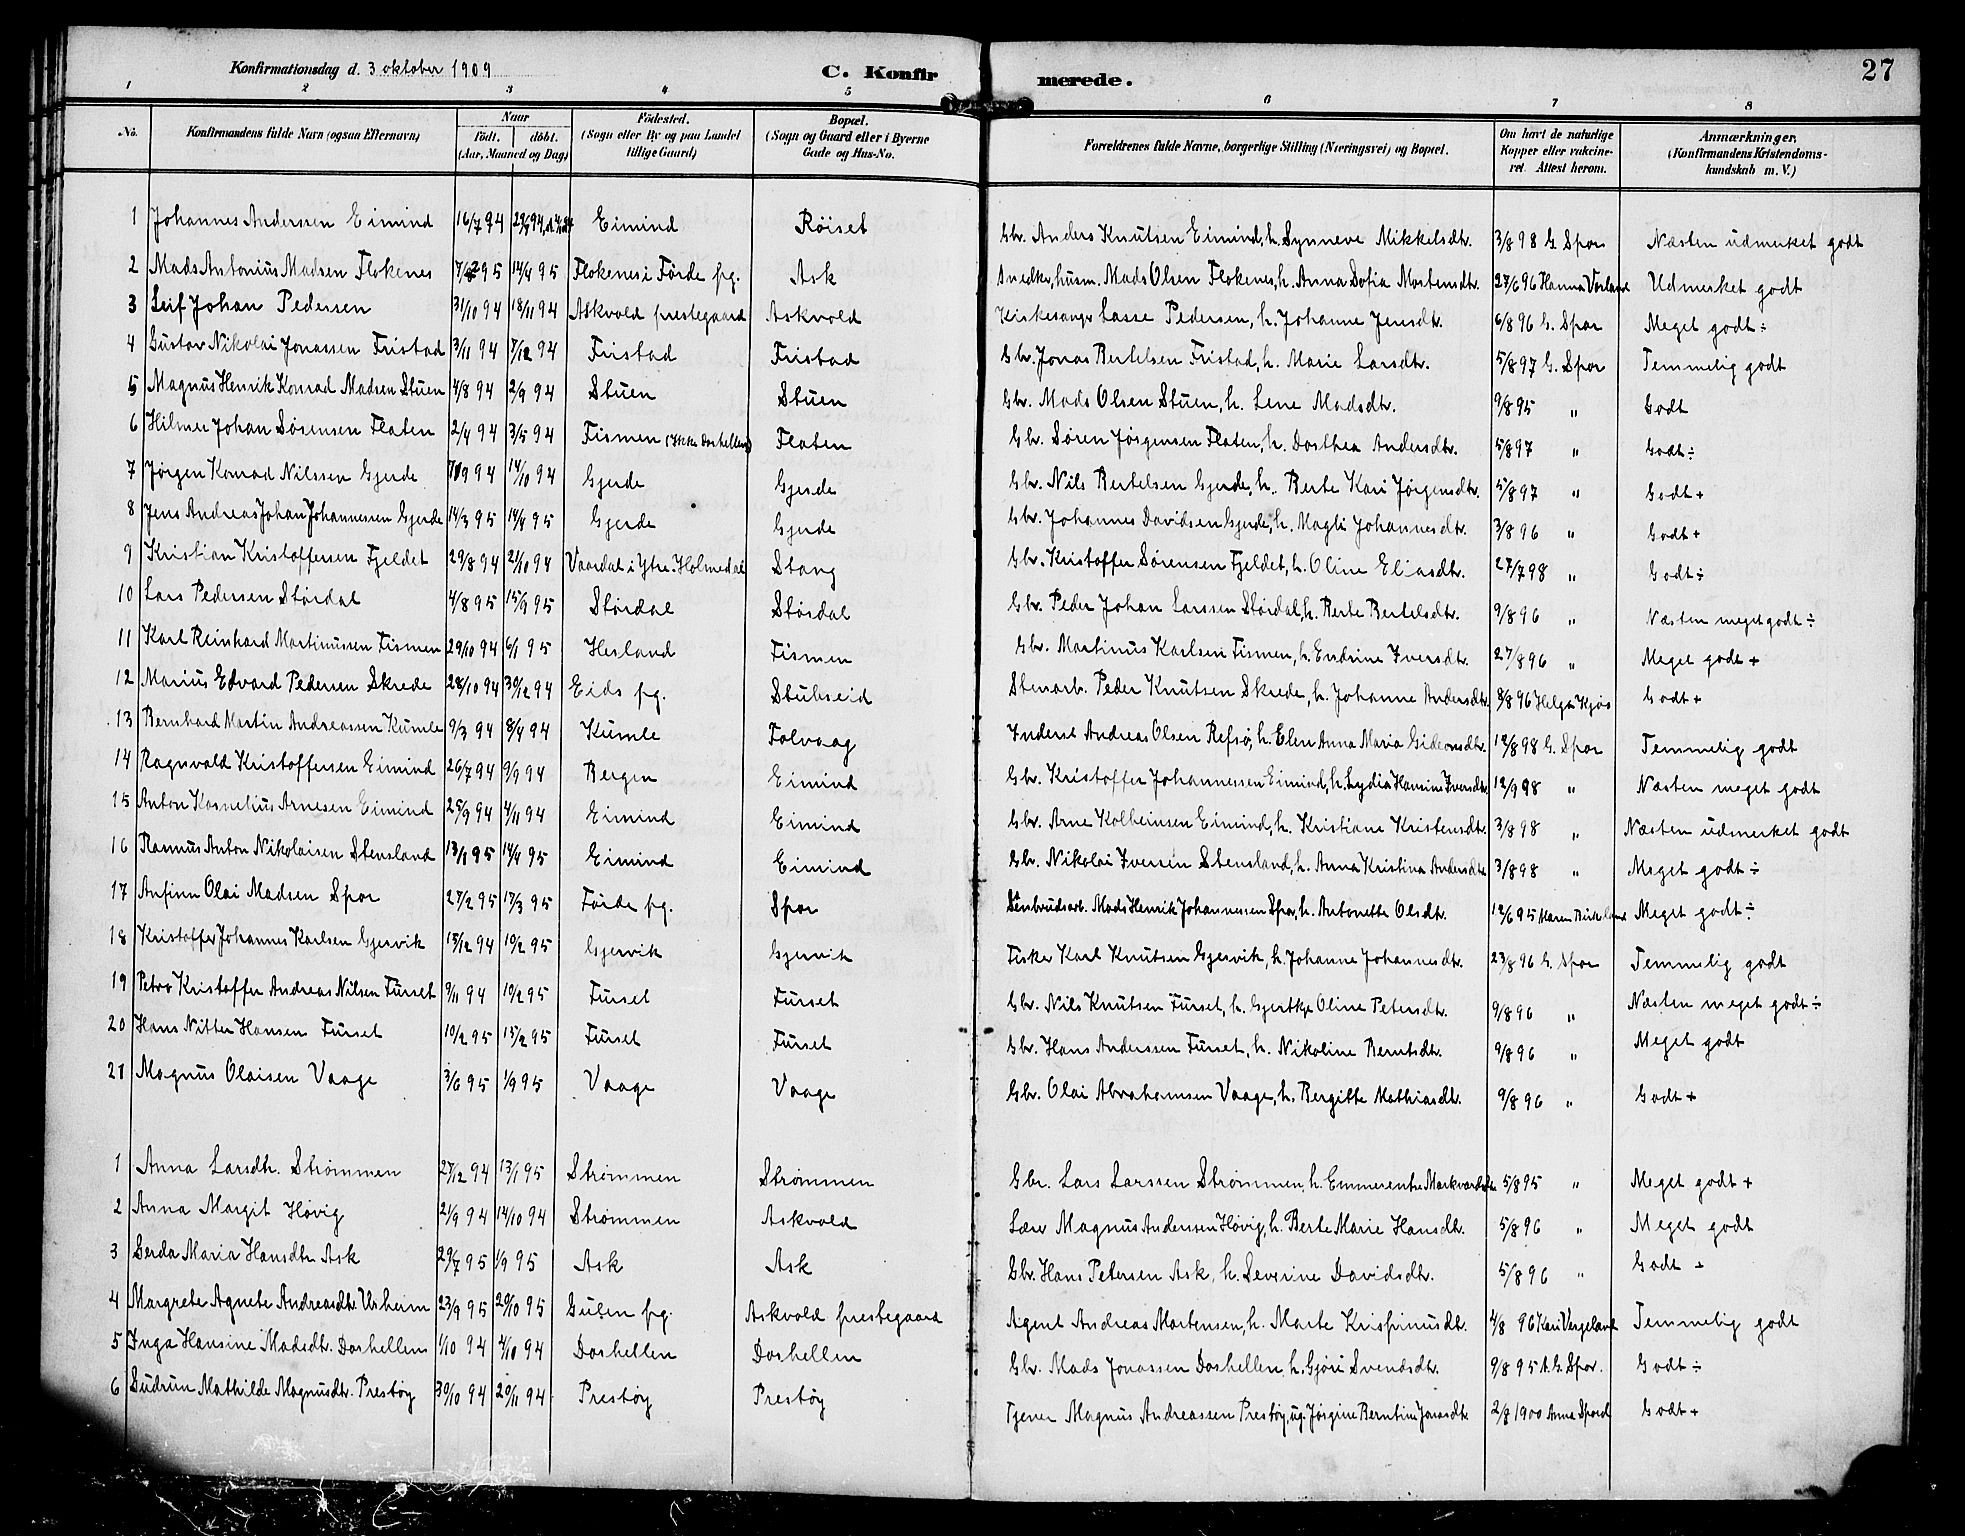 Konfirmationsdag d. 3 oktober 1909
C. Konfirmerede.
27
1 2 3 4 5 6 7 8
No. Konfirmandens fulde Navn (ogsaa Efternavn) Naar født. døbt. (Aar, Maaned og Dag) Fødested. (Sogn eller By og paa Landet tillige Gaard) Bopæl. (Sogn og Gaard eller i Byerne Gade og Hus-No. Forældrenes fulde Navne, borgerlige Stilling (Næringsvei) og Bopæl. Om havt de naturlige Kopper eller vakcineret. Attest herom. Anmærkninger. (Konfirmandens Kristendomskundskab m. V.)
1 Johannes Anderssen Eimind 16/7 94 Eimind Røiset Gbr. Anders Knutsen Eimind, h. Synneve Mikkelsdtr. 3/8 98 G. Spor Næsten udmerket godt
2 Mads Antonius Madsen Flokenes 95 14/4 95 Flokenes i Førde pg. Ask Snedker, husm. Mads Olsen Flokenes, h. Anna Sofia Mortensdtr. 27/6 96 Hanna Udmerket godt
3 Leif Johan Pedersen 31/10 94 18/11 94 Askvold prestegaard Askvold Kirkesanger Lasse Pedersen, h. Johanne Jensdtr. 6/8 96 G. Spor Meget godt ÷
4 Gustav Nikolai Jonassen Fristad 3/11 94 7/12 94 Fristad Fristad Gbr. Jonas Bertelsen Fristad, h. Marie Larsdtr. 5/8 97 G. Spor Temmelig godt
5 Magnus Henrik Konrad Madsen Stuen 4/8 94 2/9 94 Stuen Stuen Gbr. Mads Olsen Stuen, h. Lene Madsdtr. 9/8 95 " Godt
6 Hilmer Johan Sørensen Flaten 2/4 94 3/5 94 Fismen Flaten Gbr. Søren Jørgensen Flaten, h. Dorthea Andersdtr. 5/8 97 " Godt ÷
7 Jørgen Konrad Nilssen Gjerde 94 14/10 94 Gjerde Gjerde Gbr. Nils Bertelsen Gjerde, h. Berte Kari Jørgensdtr. 5/8 97 " Godt +
8 Jens Andreas Johan Johannessen Gjerde 14/3 95 14/4 95 Gjerde Gjerde Gbr. Johannes Davidsen Gjerde, h. Magli Johannesdtr. 3/8 96 " Godt +
9 Kristian Kristoffersen Fjeldet 29/8 94 21/10 94 Vaardal i Ytre Holmedal Stang Gbr. Kristoffer Sørensen Fjeldet, h. Oline Eliasdtr. 27/7 98 " Godt ÷
10 Lars Pedersen Størdal 4/8 95 15/9 95 Størdal Størdal Gbr. Peder Johan Larssen Størdal, h. Berte Bertelsdtr. 9/8 96 " Næsten meget godt ÷
11 Karl Reinhard Martinussen Fismen 29/10 94 6/1 95 Hesland Fismen Gbr. Martinus Karlsen Fismen, h. Endrine Iversdtr. 27/8 96 " Meget godt +
12 Marius Edvard Pedersen Skrede 28/10 94 30/12 94 Eids pg. Stubseid Stenarb. Peder Knutsen Skrede, h. Johanne Andersdtr. 8/8 96 Helge Kjøs Godt +
13 Bernhard Martin Andreassen Kumle 9/3 94 8/4 94 Kumle Folvaag Inderst Andreas Olsen Refsø, h. Elen Anna Maria Gideonsdtr. 12/8 98 G. Spor Temmelig godt
14 Ragnvald Kristoffersen Eimind 26/7 94 9/9 94 Bergen Eimind Gbr. Kristoffer Johannessen Eimind, h. Lydia Hansine Iversdtr. 12/9 98 " Næsten meget godt
15 Anton Kornelius Arnesen Eimind 25/9 94 4/11 94 Eimind Eimind Gbr. Arne Kolbeinsen Eimind, h. Kristiane Kristensdtr. 3/8 98 " Næsten udmerket godt
16 Rasmus Anton Nikolaisen Stensland 13/1 95 14/4 95 Eimind Eimind Gbr. Nikolai Iversen Stensland, h. Anna Kristina Andersdtr. 3/8 98 " Meget godt ÷
17 Anfinn Olai Madsen Spor 27/2 95 17/3 95 Førde pg. Spor Stenbrudsarb. Mads Henrik Johannessen Spor, h. Antonette Olsdtr. 12/6 95 Maren Birkeland Meget godt ÷
18 Kristoffer Johannes Karlsen Gjervik 15/12 94 10/2 95 Gjervik Gjervik Fisker Karl Knutsen Gjervik, h. Johanne Johannesdtr. 23/8 96 G. Spor Temmelig godt
19 Petro Kristoffer Andreas Nilsen Furset 9/11 94 10/2 95 Furset Furset Gbr. Nils Knutsen Furset, h. Oline Petersdtr. 9/8 96 " Næsten meget godt ÷
20 Hans Nitter Hansen Furset 10/2 95 17/2 95 Furset Furset Gbr. Hans Anderssen Furset, h. Nikoline Berntsdtr. 9/8 96 " Meget godt
21 Magnus Olaisen Vaage 3/6 95 1/9 95 Vaage Vaage Gbr. Olai Abrahamsen Vaage, h. Bergitte Mathiasdtr. 9/8 96 " Godt +
1 Anna Larsdtr. Strømmen 27/12 94 13/1 95 Strømmen Strømmen Gbr. Lars Larssen Strømmen, h. Emmerentse Markvardsdtr. 5/8 95 " Meget godt +
2 Anna Margit Høvig 21/9 94 14/10 94 Strømmen Askvold Lærer Magnus Anderssen Høvig, h. Berte Marie Hansdtr. 5/8 96 " Meget godt
3 Gerda Maria Hansdtr. Ask 29/7 95 1/9 95 Ask Ask Gbr. Hans Petersen Ask, h. Severine Davidsdtr. 5/8 96 " Godt
4 Margrete Agnete Andreasdtr. Urheim 23/9 95 20/10 95 Gulen pg. Askvold prestegaard Agent Andreas Mortensen, h. Marte Krispinusdtr. 4/8 96 Kari Vergeland Temmelig godt
5 Inga Hansine Madsdtr. Doshellen 1/10 94 4/10 94 Doshellen Doshellen Gbr. Mads Jonassen Doshellen, h. Gjøri Svendsdtr. 9/8 95 A. G. Spor. Godt ÷
6 Gudrun Mathilde Magnusdtr. Prestøy 30/10 94 20/11 94 Prestøy Prestøy Tjener Magnus Andreassen Prestøy, ug. Jørgine Berntine Jonasdtr. 2/8 1900 Anna Godt +